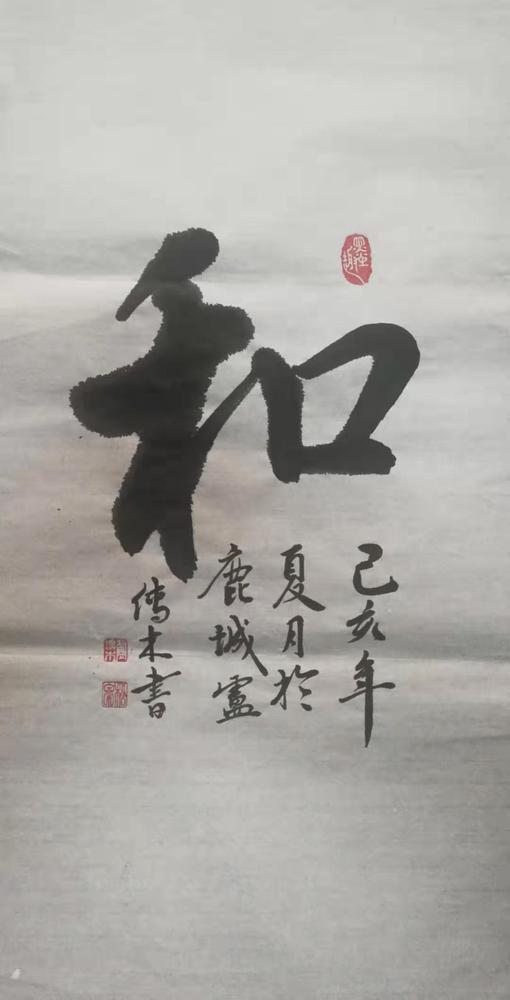 和
己亥年
夏月於
鹿城盧
傳木書